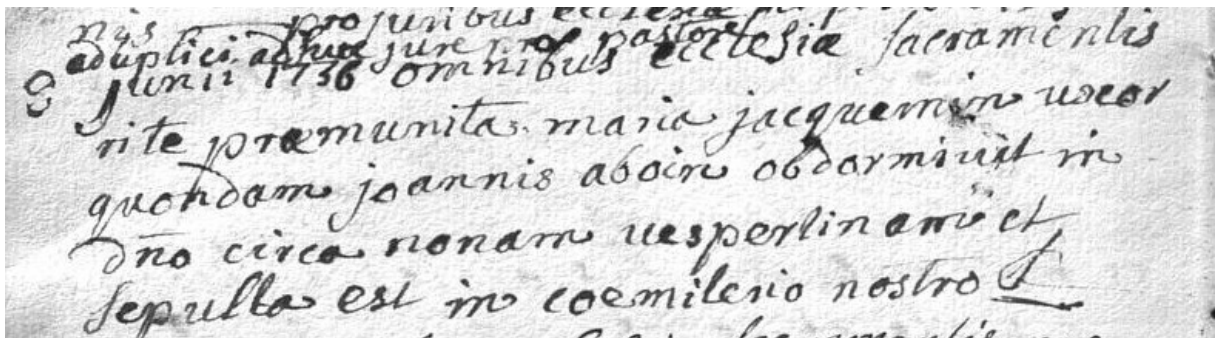 pro juribus ecclesiæ
a duplici adhuc jure pastor
8 Junii 1736 omnibus ecclesiæ sacramentis
rite præmunita maria jacquemin uxor
quondam joannis aboin obdormivit in
dño circa nonam vespertinam et
sepulta est in coemiterio nostro